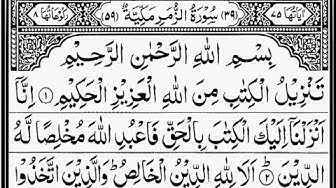 اٰیَاتُهَا ۷۵ (۳۹) سُوْرَةُ الزُّمَرِ مَكِّیَّةٌ (۵۹) رُكُوْعَاتُهَا ۸
بِسْمِ اللّٰهِ الرَّحْمٰنِ الرَّحِیْمِ
تَنْزِیْلُ الْكِتٰبِ مِنَ اللّٰهِ الْعَزِیْزِ الْحَكِیْمِ ۝۱ اِنَّاۤ
اَنْزَلْنَاۤ اِلَیْكَ الْكِتٰبَ بِالْحَقِّ فَاعْبُدِ اللّٰهَ مُخْلِصًا لَّهُ
الدِّیْنَ ۝۲ اَلَا لِلّٰهِ الدِّیْنُ الْخَالِصُ ؕ وَالَّذِیْنَ اتَّخَذُوْا